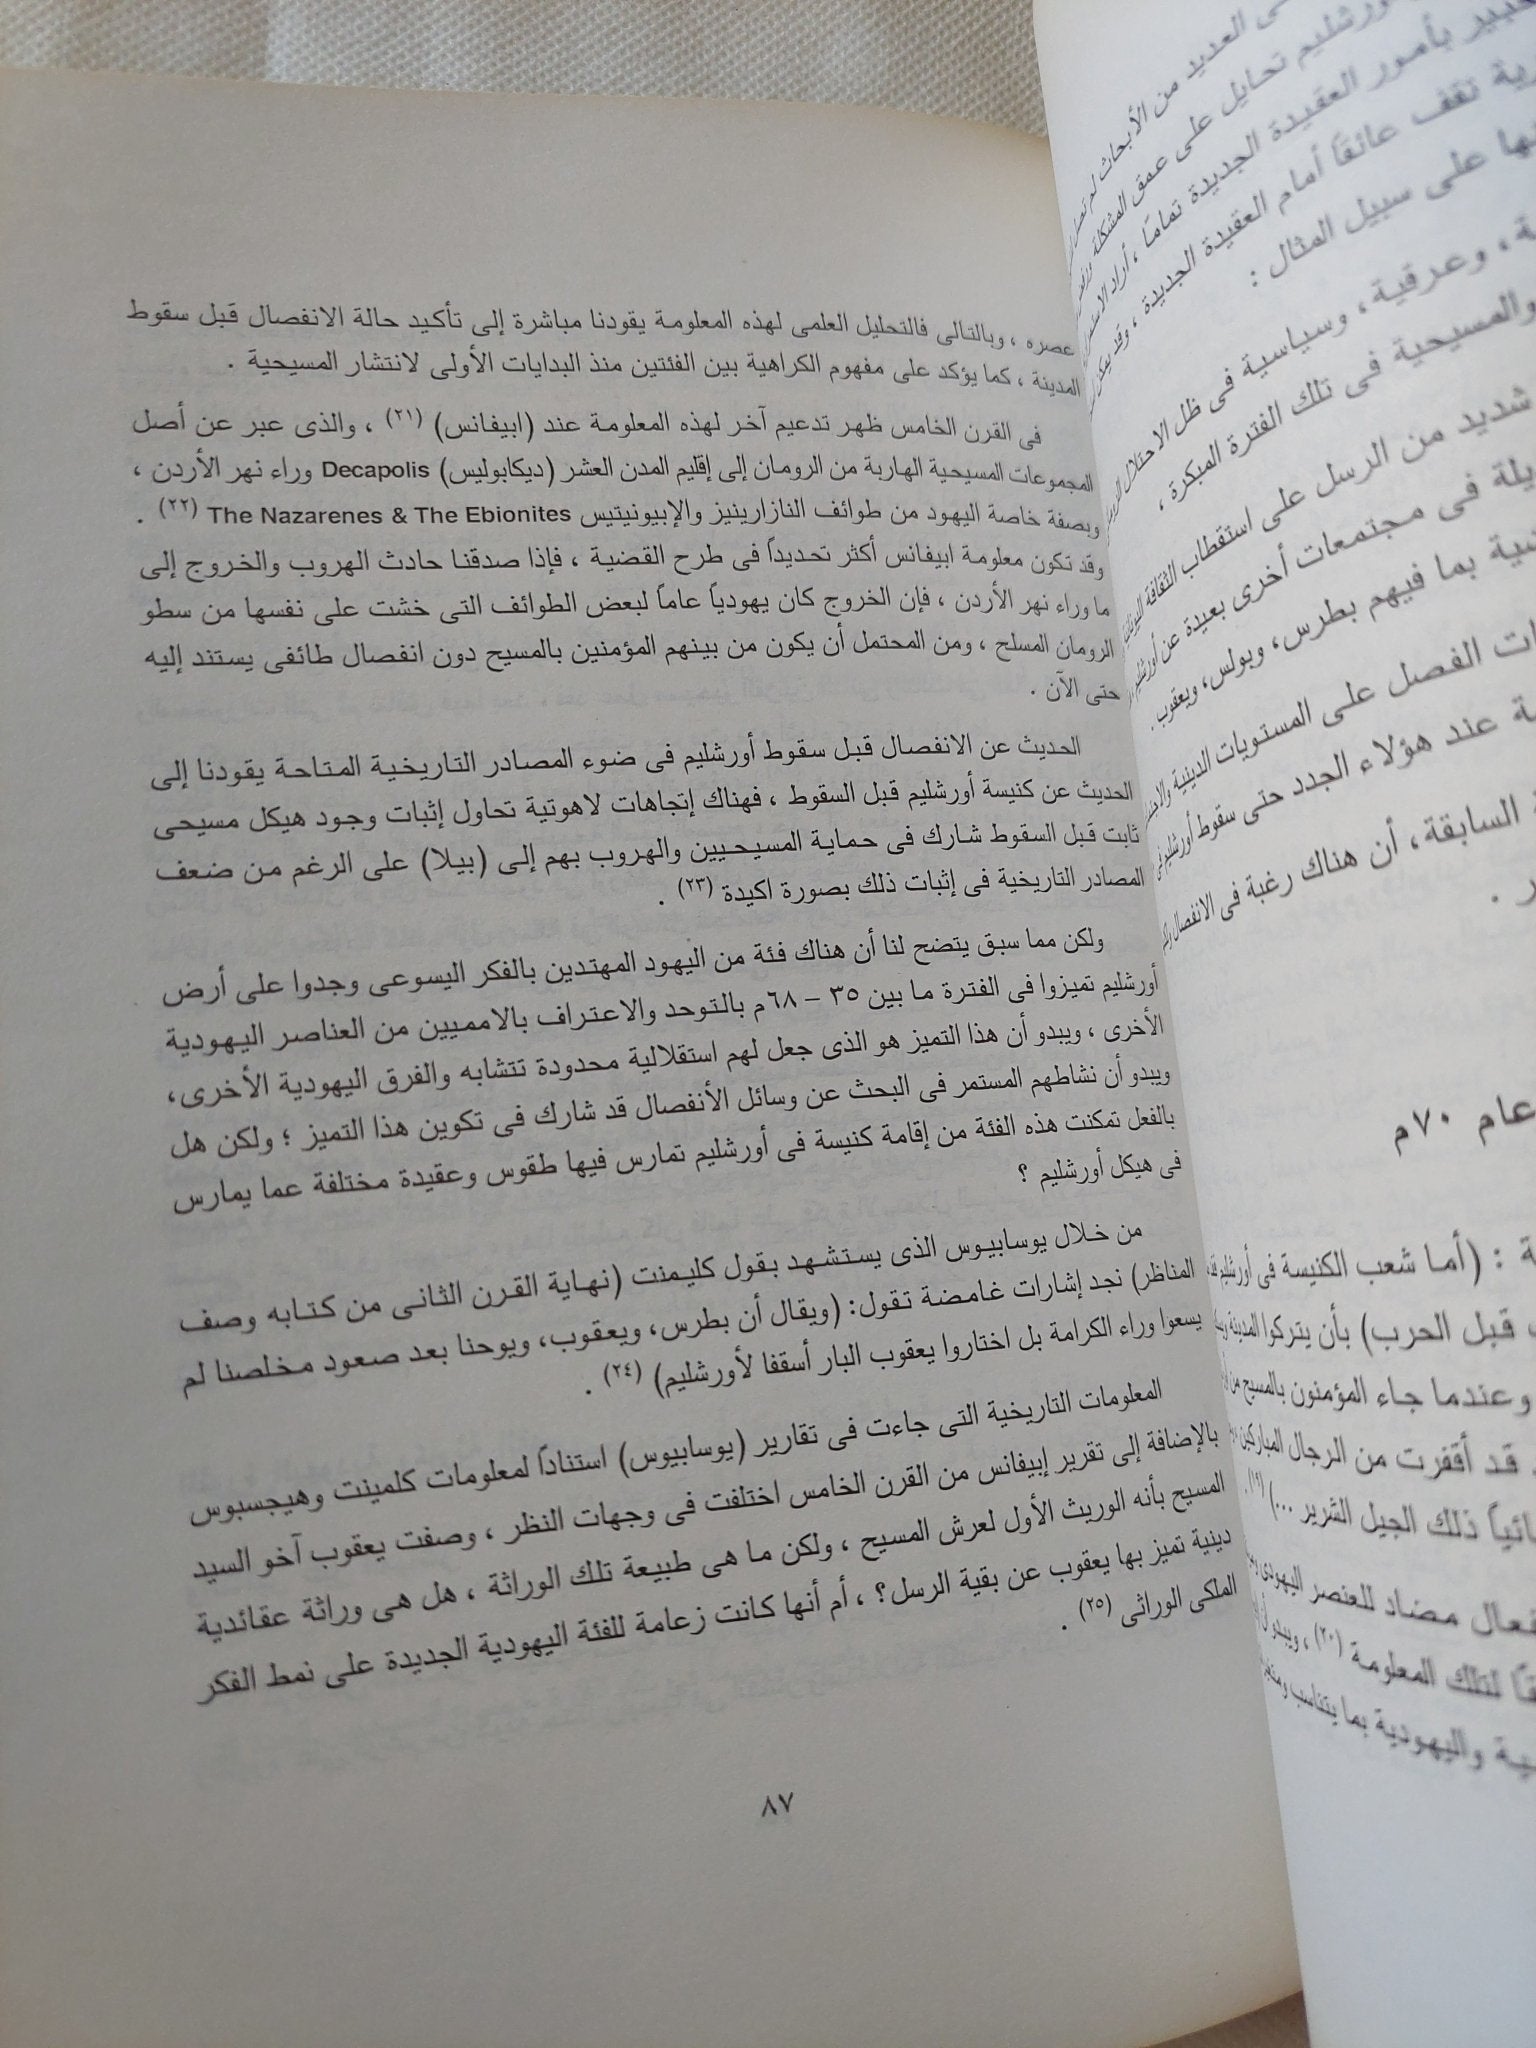 ى العديد من الأبحاث لم تصل
ورشليم تحايل على عمق المشكلة
بير بأمور العقيدة الجديدة تماما ، أراد
رية تقف عائقًا أمام العقيدة الجديدة ، وقد يمكن
ها على سبيل المثال :
ة ، وعرقية، وسياسية فى ظل الاحتلال
والمسيحية فى تلك الفترة المبكرة ،
شديد من الرسل على استقطاب الثقافة
يلة فى مجتمعات أخرى بعيدة عن أورشليم
ية بما فيهم بطرس، وبولس، ويعقوب .
ات الفصل على المستويات الدينية
ة عند هؤلاء الجدد حتى سقوط أورشليم فى
السابقة، أن هناك رغبة فى الانفصال
ر .
عام ٧٠م
ة : (أما شعب الكنيسة فى أورشليم
قبل الحرب) بأن يتركوا المدينة
وعندما جاء المؤمنون بالمسيح من
قد أقفرت من الرجال المباركين
ائياً ذلك الجيل الشرير ...) (١٩).
فعال مضاد للعنصر اليهودى
قًا لتلك المعلومة (٢٠) ، ويبدو أن
ية واليهودية بما يتناسب
عصره ، وبالتالى فالتحليل العلمى لهذه المعلومة يقودنا مباشرة إلى تأكيد حالة الانفصال قبل سقوط
المدينة ، كما يؤكد على مفهوم الكراهية بين الفئتين منذ البدايات الأولى لانتشار المسيحية .
فى القرن الخامس ظهر تدعيم آخر لهذه المعلومة عند (ابيفانس) (٢١) ، والذى عبر عن أصل
المجموعات المسيحية الهاربة من الرومان إلى إقليم المدن العشر (ديكابوليس) Decapolis وراء نهر الأردن ،
وبصفة خاصة اليهود من طوائف النازارينيز والإبيونيتيس The Nazarenes & The Ebionites (٢٢) .
وقد تكون معلومة ابيفانس أكثر تحديداً فى طرح القضية ، فإذا صدقنا حادث الهروب والخروج إلى
ما وراء نهر الأردن ، فإن الخروج كان يهودياً عاماً لبعض الطوائف التى خشت على نفسها من سطو
الرومان المسلح ، ومن المحتمل أن يكون من بينهم المؤمنين بالمسيح دون انفصال طائفى يستند إليه
حتى الآن .
الحديث عن الانفصال قبل سقوط أورشليم فى ضوء المصادر التاريخية المتاحة يقودنا إلى
الحديث عن كنيسة أورشليم قبل السقوط ، فهناك إتجاهات لاهوتية تحاول إثبات وجود هيكل مسيحى
ثابت قبل السقوط شارك فى حماية المسيحيين والهروب بهم إلى (بيلا) على الرغم من ضعف
المصادر التاريخية فى إثبات ذلك بصورة اكيدة (٢٣) .
ولكن مما سبق يتضح لنا أن هناك فئة من اليهود المهتدين بالفكر اليسوعى وجدوا على أرض
أورشليم تميزوا فى الفترة ما بين ٣٥ – ٦٨م بالتوحد والاعتراف بالامميين من العناصر اليهودية
الأخرى ، ويبدو أن هذا التميز هو الذى جعل لهم استقلالية محدودة تتشابه والفرق اليهودية الأخرى،
ويبدو أن نشاطهم المستمر فى البحث عن وسائل الأنفصال قد شارك فى تكوين هذا التميز ؛ ولكن هل
بالفعل تمكنت هذه الفئة من إقامة كنيسة فى أورشليم تمارس فيها طقوس وعقيدة مختلفة عما يمارس
فى هيكل أورشليم ؟
من خلال يوسابيوس الذى يستشهد بقول كليمنت (نهاية القرن الثانى من كتابه وصف
المناظر) نجد إشارات غامضة تقول: (ويقال أن بطرس، ويعقوب، ويوحنا بعد صعود مخلصنا لم
يسعوا وراء الكرامة بل اختاروا يعقوب البار أسقفا لأورشليم) (٢٤) .
المعلومات التاريخية التى جاءت فى تقارير (يوسابيوس) استناداً لمعلومات كلمينت وهيجسبوس
بالإضافة إلى تقرير إبيفانس من القرن الخامس اختلفت فى وجهات النظر ، وصفت يعقوب آخو السيد
المسيح بأنه الوريث الأول لعرش المسيح ، ولكن ما هى طبيعة تلك الوراثة ، هل هى وراثة عقائدية
دينية تميز بها يعقوب عن بقية الرسل؟ ، أم أنها كانت زعامة للفئة اليهودية الجديدة على نمط الفكر
الملكى الوراثى (٢٥) .
٨٧